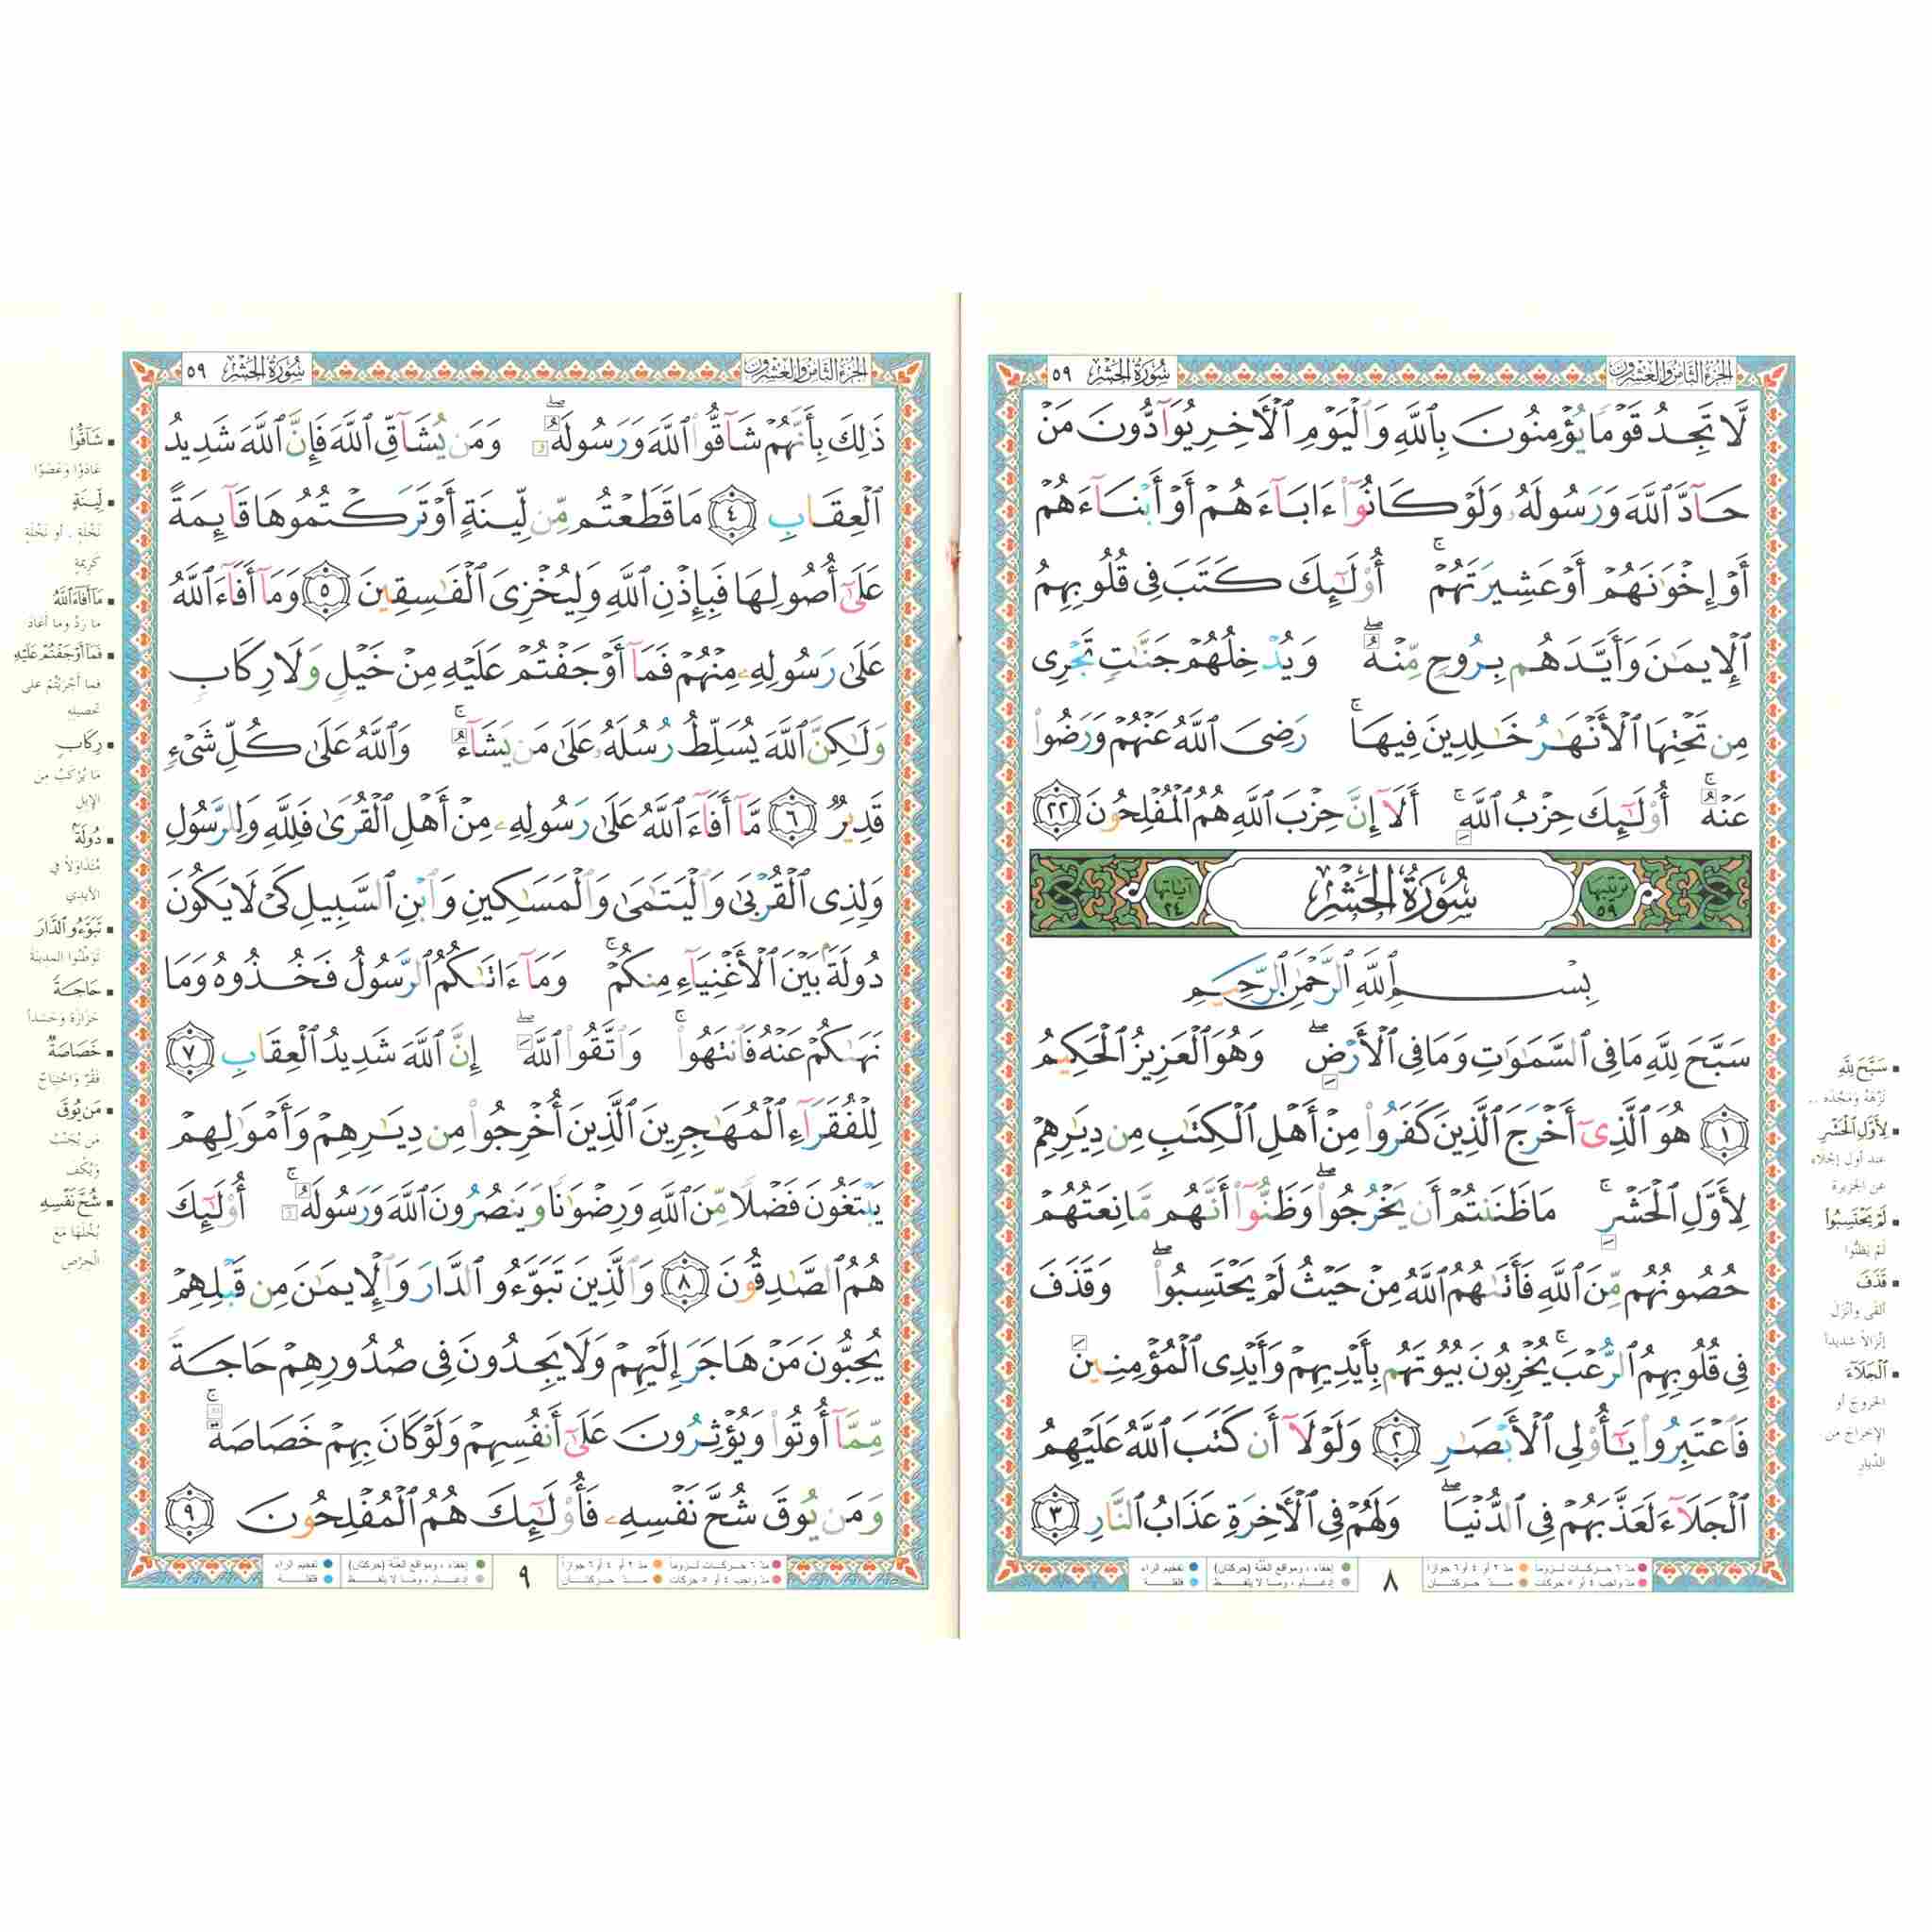 الجزء الثامن والعشرون
سورة الحشر ٥٩
لَّا تَجِدُ قَوْمًا يُؤْمِنُونَ بِٱللَّهِ وَٱلْيَوْمِ ٱلْأَخِرِ يُوَآدُّونَ مَنْ
حَآدَّ ٱللَّهَ وَرَسُولَهُۥ وَلَوْ كَانُوٓا۟ ءَابَآءَهُمْ أَوْ أَبْنَآءَهُمْ
أَوْ إِخْوَٰنَهُمْ أَوْ عَشِيرَتَهُمْ ۚ أُو۟لَٰٓئِكَ كَتَبَ فِى قُلُوبِهِمُ
ٱلْإِيمَٰنَ وَأَيَّدَهُم بِرُوحٍ مِّنْهُ ۖ وَيُدْخِلُهُمْ جَنَّٰتٍ تَجْرِى
مِن تَحْتِهَا ٱلْأَنْهَٰرُ خَٰلِدِينَ فِيهَا ۚ رَضِىَ ٱللَّهُ عَنْهُمْ وَرَضُوا۟
عَنْهُ ۚ أُو۟لَٰٓئِكَ حِزْبُ ٱللَّهِ ۚ أَلَآ إِنَّ حِزْبَ ٱللَّهِ هُمُ ٱلْمُفْلِحُونَ ٢٢
ترتيبها ٥٩ سُورَةُ الحَشْرِ آياتها ٢٤
بِسْمِ ٱللَّهِ ٱلرَّحْمَٰنِ ٱلرَّحِيمِ
سَبَّحَ لِلَّهِ مَا فِى ٱلسَّمَٰوَٰتِ وَمَا فِى ٱلْأَرْضِ ۖ وَهُوَ ٱلْعَزِيزُ ٱلْحَكِيمُ
١ هُوَ ٱلَّذِىٓ أَخْرَجَ ٱلَّذِينَ كَفَرُوا۟ مِنْ أَهْلِ ٱلْكِتَٰبِ مِن دِيَٰرِهِمْ
لِأَوَّلِ ٱلْحَشْرِ ۚ مَا ظَنَنتُمْ أَن يَخْرُجُوا۟ ۖ وَظَنُّوٓا۟ أَنَّهُم مَّانِعَتُهُمْ
حُصُونُهُم مِّنَ ٱللَّهِ فَأَتَىٰهُمُ ٱللَّهُ مِنْ حَيْثُ لَمْ يَحْتَسِبُوا۟ ۖ وَقَذَفَ
فِى قُلُوبِهِمُ ٱلرُّعْبَ ۚ يُخْرِبُونَ بُيُوتَهُم بِأَيْدِيهِمْ وَأَيْدِى ٱلْمُؤْمِنِينَ
فَٱعْتَبِرُوا۟ يَٰٓأُو۟لِى ٱلْأَبْصَٰرِ ٢ وَلَوْلَآ أَن كَتَبَ ٱللَّهُ عَلَيْهِمُ
ٱلْجَلَآءَ لَعَذَّبَهُمْ فِى ٱلدُّنْيَا ۖ وَلَهُمْ فِى ٱلْأَخِرَةِ عَذَابُ ٱلنَّارِ ٣
سَبَّحَ لِلَّهِ
نَزَّهَهُ وَمَجَّدَه ..
لِأَوَّلِ ٱلْحَشْرِ
عند أول إجْلاء
عن الجزيرة
لَمْ يَحْتَسِبُوا۟
لَمْ يَظنُّوا
قَذَفَ
ألقى وأنزل
إنزالاً شديداً
ٱلْجَلَآءَ
الخروج أو
الإخراج من
الدِّيار
مدّ ٦ حركات لزوماً مدّ ٢ أو ٤ أو ٦ جوازاً إخفاء، ومواقع الغنّة (حركتان) تفخيم الراء
مدّ واجب ٤ أو ٥ حركات مدّ حركتان إدغام، وما لا يُلفظ قلقلة
٨
الجزء الثامن والعشرون
سورة الحشر ٥٩
ذَٰلِكَ بِأَنَّهُمْ شَآقُّوا۟ ٱللَّهَ وَرَسُولَهُ ۖ وَمَن يُشَآقِّ ٱللَّهَ فَإِنَّ ٱللَّهَ شَدِيدُ
ٱلْعِقَابِ ٤ مَا قَطَعْتُم مِّن لِّينَةٍ أَوْ تَرَكْتُمُوهَا قَآئِمَةً
عَلَىٰٓ أُصُولِهَا فَبِإِذْنِ ٱللَّهِ وَلِيُخْزِىَ ٱلْفَٰسِقِينَ ٥ وَمَآ أَفَآءَ ٱللَّهُ
عَلَىٰ رَسُولِهِۦ مِنْهُمْ فَمَآ أَوْجَفْتُمْ عَلَيْهِ مِنْ خَيْلٍ وَلَا رِكَابٍ
وَلَٰكِنَّ ٱللَّهَ يُسَلِّطُ رُسُلَهُۥ عَلَىٰ مَن يَشَآءُ ۚ وَٱللَّهُ عَلَىٰ كُلِّ شَىْءٍ
قَدِيرٌ ٦ مَّآ أَفَآءَ ٱللَّهُ عَلَىٰ رَسُولِهِۦ مِنْ أَهْلِ ٱلْقُرَىٰ فَلِلَّهِ وَلِلرَّسُولِ
وَلِذِى ٱلْقُرْبَىٰ وَٱلْيَتَٰمَىٰ وَٱلْمَسَٰكِينِ وَٱبْنِ ٱلسَّبِيلِ كَىْ لَا يَكُونَ
دُولَةًۢ بَيْنَ ٱلْأَغْنِيَآءِ مِنكُمْ ۚ وَمَآ ءَاتَىٰكُمُ ٱلرَّسُولُ فَخُذُوهُ وَمَا
نَهَىٰكُمْ عَنْهُ فَٱنتَهُوا۟ ۚ وَٱتَّقُوا۟ ٱللَّهَ ۖ إِنَّ ٱللَّهَ شَدِيدُ ٱلْعِقَابِ ٧
لِلْفُقَرَآءِ ٱلْمُهَٰجِرِينَ ٱلَّذِينَ أُخْرِجُوا۟ مِن دِيَٰرِهِمْ وَأَمْوَٰلِهِمْ
يَبْتَغُونَ فَضْلًا مِّنَ ٱللَّهِ وَرِضْوَٰنًا وَيَنصُرُونَ ٱللَّهَ وَرَسُولَهُ ۚ أُو۟لَٰٓئِكَ
هُمُ ٱلصَّٰدِقُونَ ٨ وَٱلَّذِينَ تَبَوَّءُو ٱلدَّارَ وَٱلْإِيمَٰنَ مِن قَبْلِهِمْ
يُحِبُّونَ مَنْ هَاجَرَ إِلَيْهِمْ وَلَا يَجِدُونَ فِى صُدُورِهِمْ حَاجَةً
مِّمَّآ أُوتُوا۟ وَيُؤْثِرُونَ عَلَىٰٓ أَنفُسِهِمْ وَلَوْ كَانَ بِهِمْ خَصَاصَةٌ ۚ
وَمَن يُوقَ شُحَّ نَفْسِهِۦ فَأُو۟لَٰٓئِكَ هُمُ ٱلْمُفْلِحُونَ ٩
شَآقُّوا۟
عَادَوْا وَعَصَوْا
لِّينَةٍ
نَخْلَةٍ . أو نَخْلَةٍ
كَرِيمةٍ
مَآ أَفَآءَ ٱللَّهُ
ما ردّ وما أعاد
فَمَآ أَوْجَفْتُمْ عَلَيْهِ
فما أجْرَيْتُمْ على
تحصيله
رِكَابٍ
ما يُرْكَبُ من
الإبل
دُولَةًۢ
مُتداوَلاً في
الأيدي
تَبَوَّءُو ٱلدَّارَ
تَوَطَّنُوا المدينة
حَاجَةً
حَزَازَة وحَسَداً
خَصَاصَةٌ
فَقْرٌ وَاحْتِيَاجٌ
مَن يُوقَ
مَن يُجَنَّبْ
وَيُكْفَ
شُحَّ نَفْسِهِ
بُخْلَهَا مَعَ
الْحِرْصِ
مدّ ٦ حركات لزوماً مدّ ٢ أو ٤ أو ٦ جوازاً إخفاء، ومواقع الغنّة (حركتان) تفخيم الراء
مدّ واجب ٤ أو ٥ حركات مدّ حركتان إدغام، وما لا يُلفظ قلقلة
٩